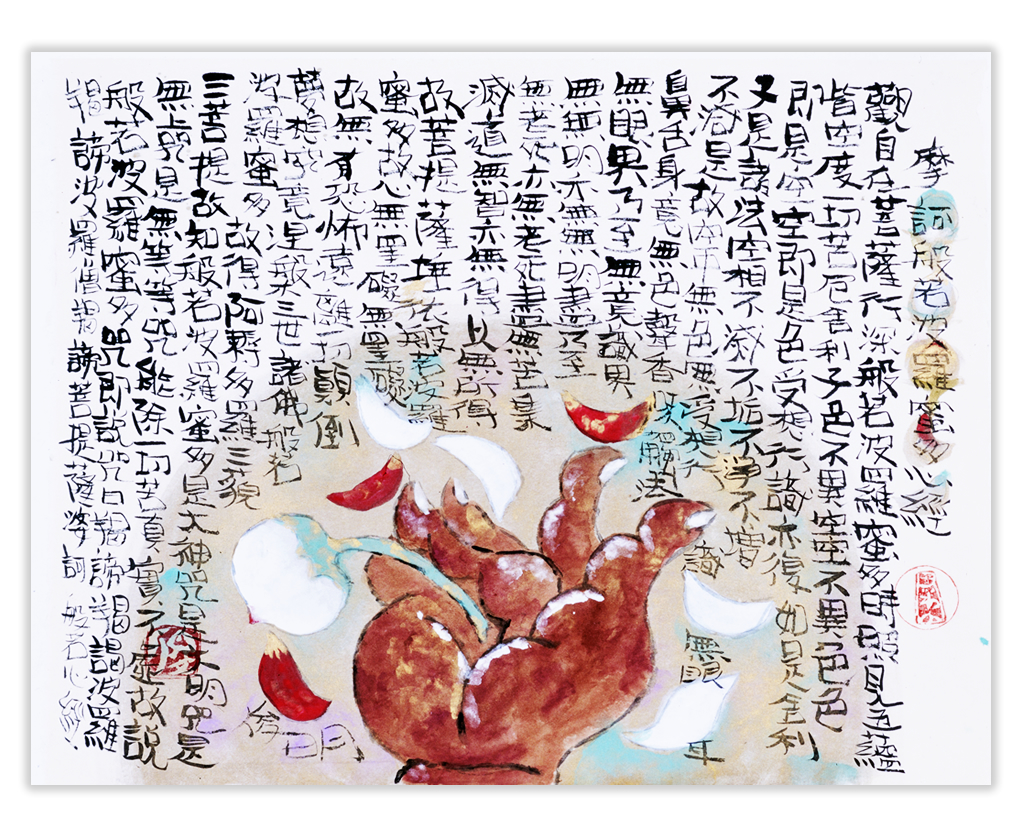 摩訶般若波羅蜜多心經
觀自在菩薩行深般若波羅蜜多時照見五蘊
皆空度一切苦厄舍利子色不異空空不異色色
即是空空即是色受想行識亦復如是舍利
又是諸法空相不滅不垢不淨不增
不減是故空中無色無受想行識無眼耳
鼻舌身意無色聲香味觸法
無眼界乃至無意識界
無無明亦無無明盡乃至
無老死亦無老死盡無苦集
滅道無智亦無得以無所得
故菩提薩埵依般若波羅
蜜多故心無罣礙無罣礙
故無有恐怖遠離一切顛倒
夢想究竟涅槃三世諸佛般若
波羅蜜多故得阿耨多羅三藐
三菩提故知般若波羅蜜多是大神咒是大明咒是
無上咒是無等等咒能除一切苦真實不虛故說
般若波羅蜜多咒即說咒曰羯諦羯諦波羅
羯諦波羅僧羯諦菩提薩婆訶般若心經